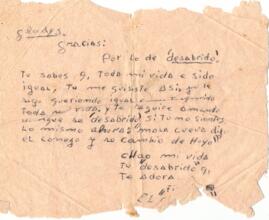 Gladys.
Gracias:
Por lo de "desabrido"
Tu sabes q, toda mi vida e sido
igual, Tu me quisiste Asi y te
sigo queriendo igual
Toda mi vida, y te seguire Amando
aunque sea desabrido si Tu
Lo mismo ahora: "mala cueva dijo
el conejo y se cambio de Hoyo"!!!
chao mi vida
Tu "desabrido" q,
Te Adora
EL